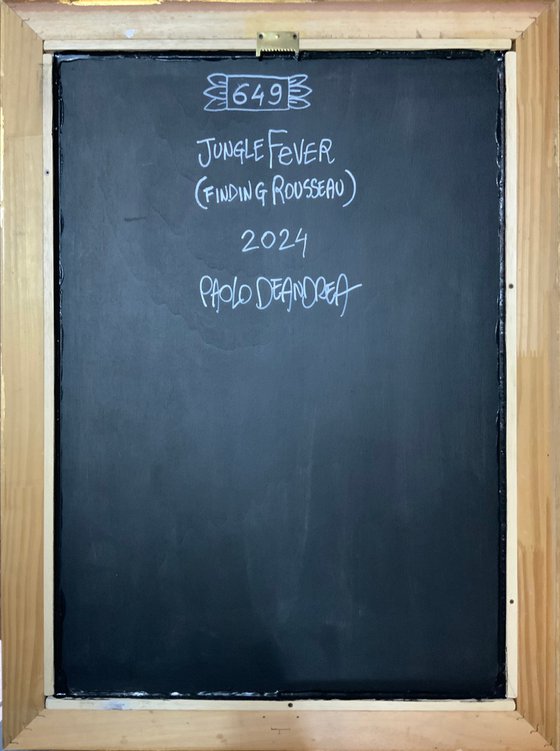 649
JUNGLE FEVER
(FINDING ROUSSEAU)
2024
PAOLO DEANDREA